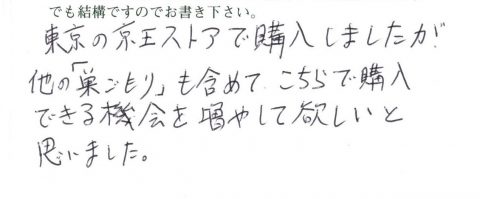 でも結構ですのでお書き下さい。
東京の京王ストアで購入しましたが
他の「巣ごもり」も含めて こちらで購入
できる機会を増やして欲しいと
思いました。